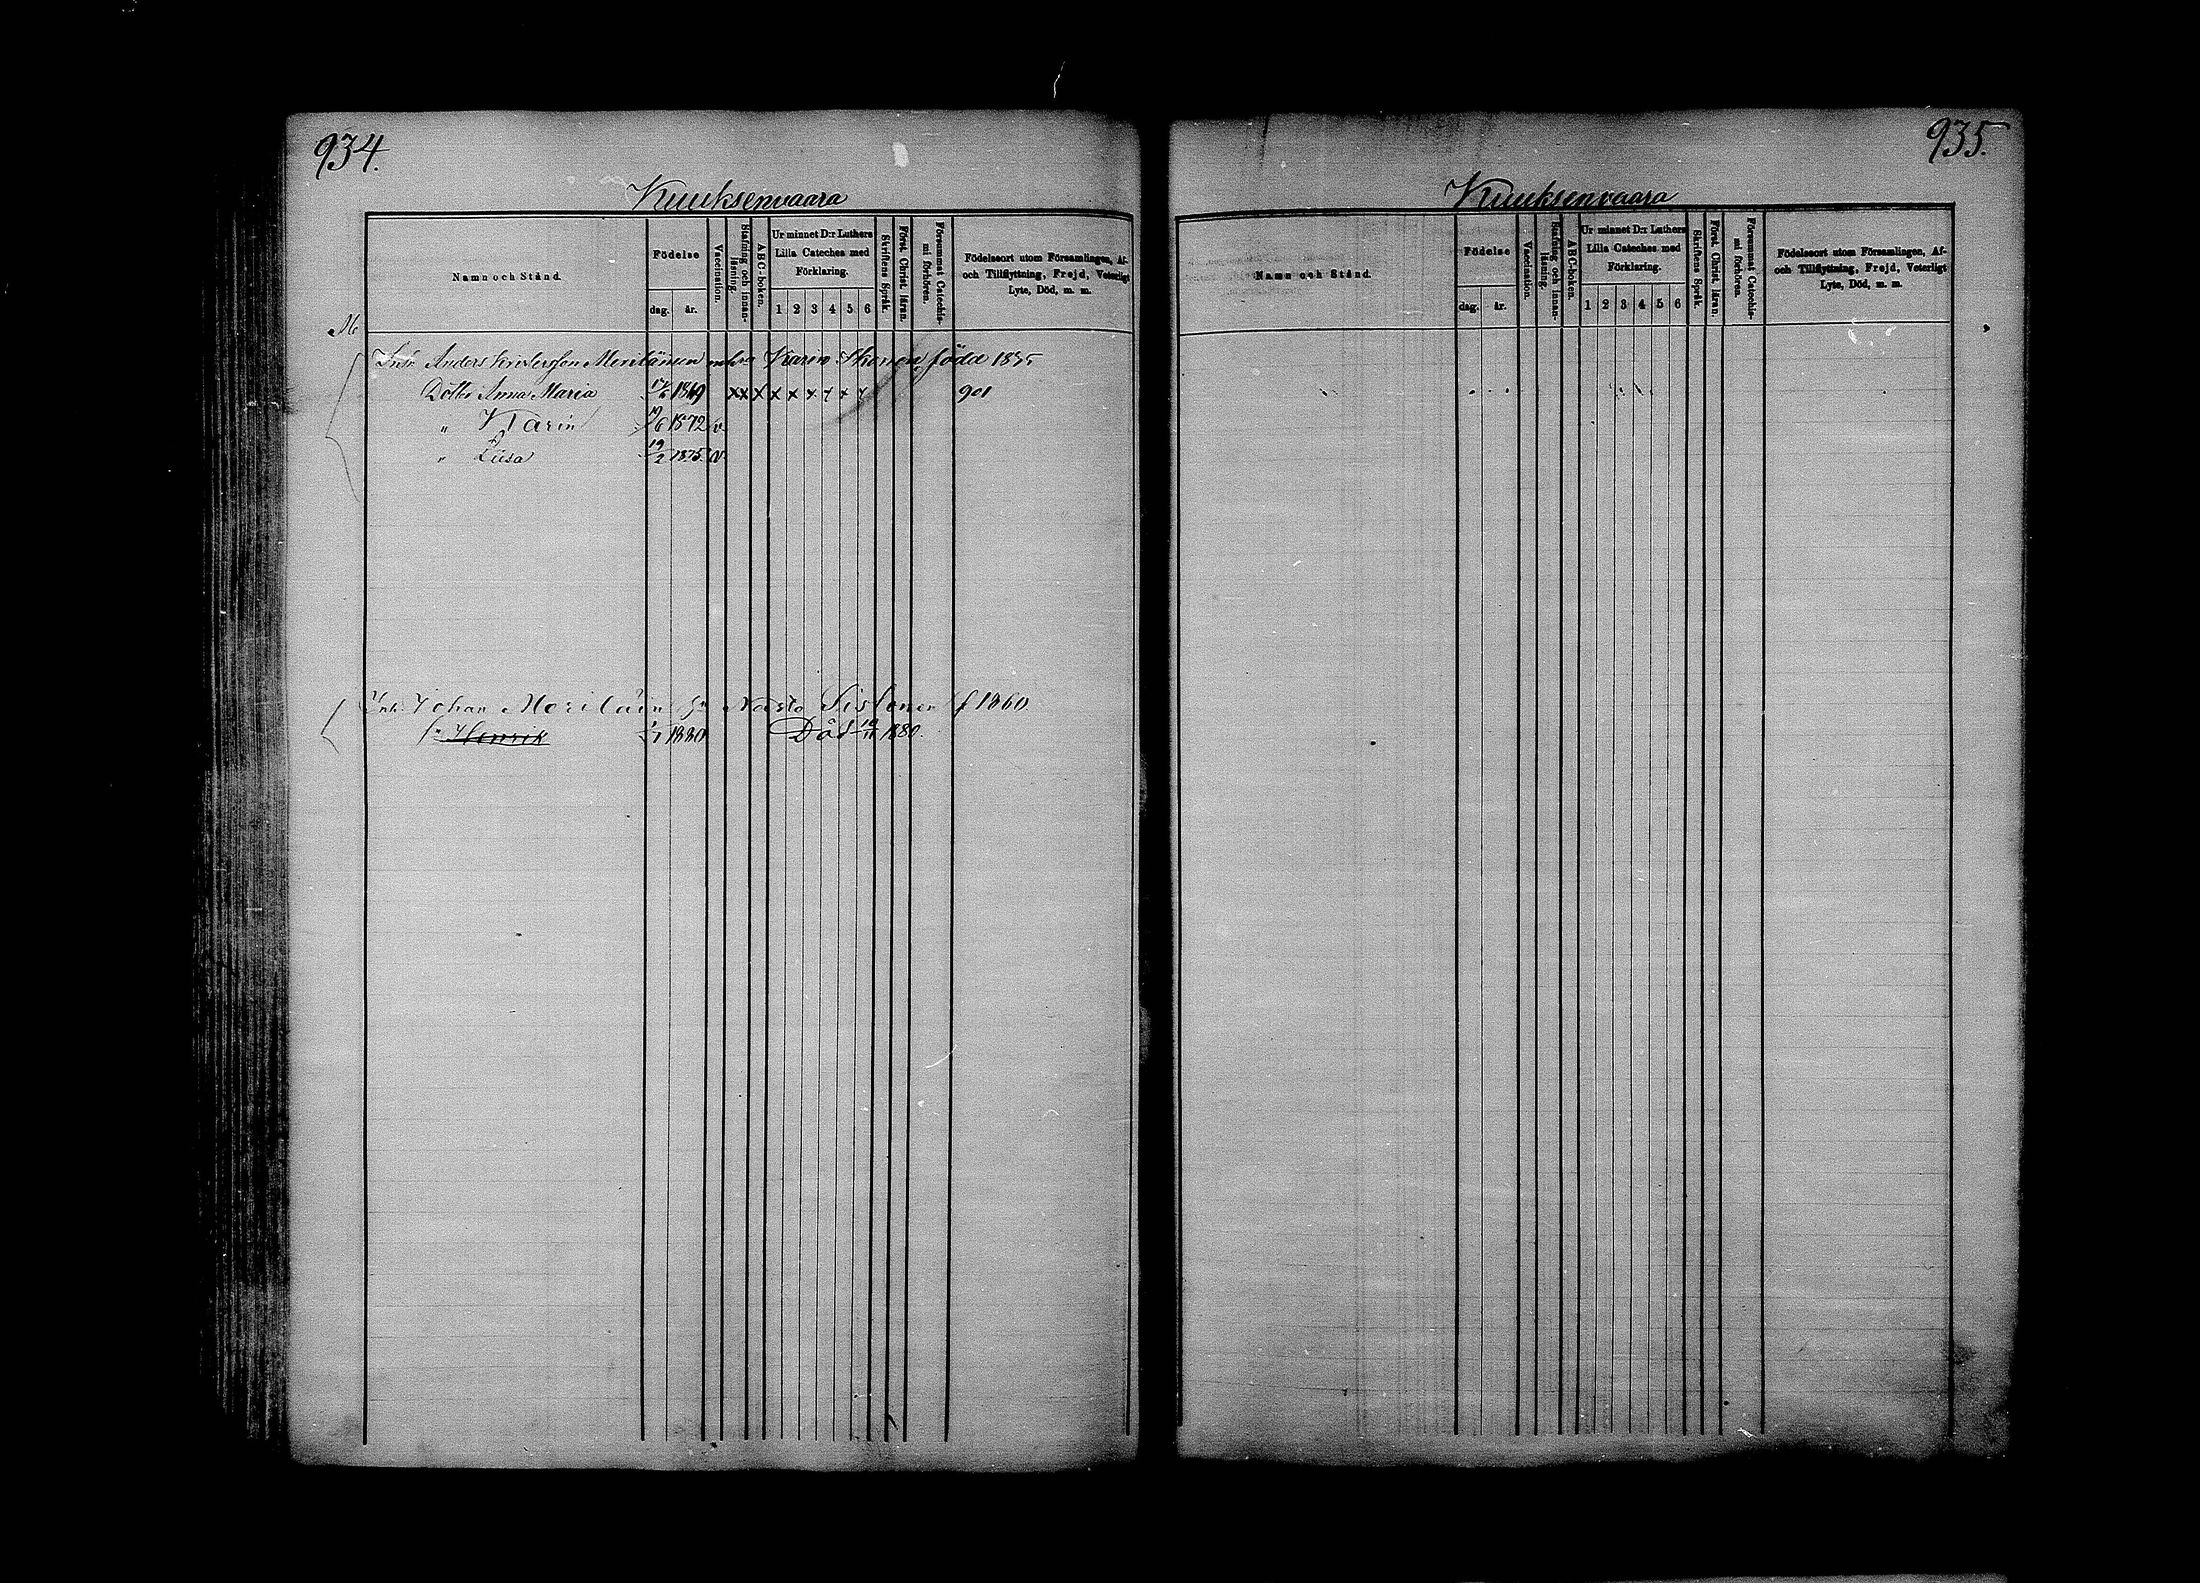 934.
Kuuksenvaara
Namn och Stånd.
Födelse
dag. år.
Vaccination.
Stafning och innanläsning.
ABC-boken.
Ur minnet D:r Luthers Lilla Cateches med Förklaring.
1 2 3 4 5 6
Skriftens Språk.
Först. Christ. läran.
Försummat Catechismi förhören.
Födelseort utom Församlingen, Af- och Tillflyttning, Frejd, Veterligt Lyte, Död, m. m.
Inh. Anders Meriläinen Karin född 1835
Dottr Anna Maria 1869 x x x x x x x x x 901
" Karin 19/6 1872 v.
" Liisa 19/2 1875. v.
Inh. Johan Meriläin Sistonen f 1860.
Henrik 1/1 1880 Död 1880.
935.
Kuuksenvaara
Namn och Stånd.
Födelse
dag. år.
Vaccination.
Stafning och innanläsning.
ABC-boken.
Ur minnet D:r Luthers Lilla Cateches med Förklaring.
1 2 3 4 5 6
Skriftens Språk.
Först. Christ. läran.
Försummat Catechismi förhören.
Födelseort utom Församlingen, Af- och Tillflyttning, Frejd, Veterligt Lyte, Död, m. m.